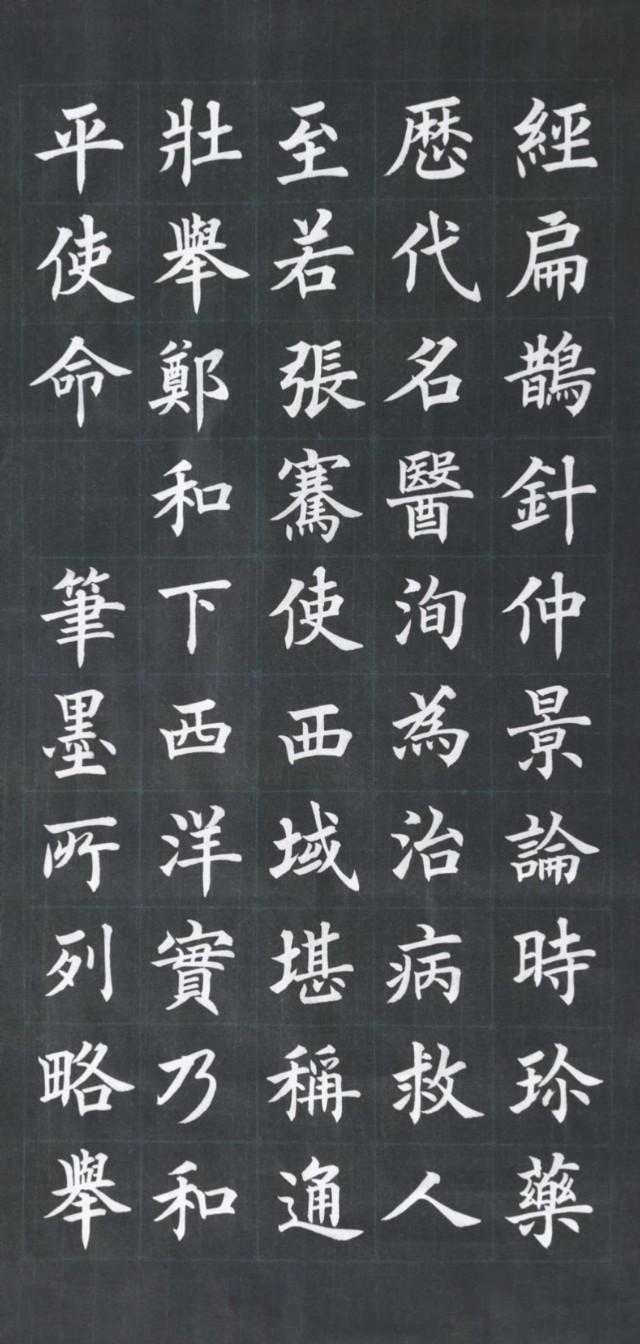 經扁鵲針仲景論時珎藥
歷代名醫洵為治病救人
至若張騫使西域堪稱通
壯舉鄭和下西洋實乃和
平使命 筆墨所列略舉